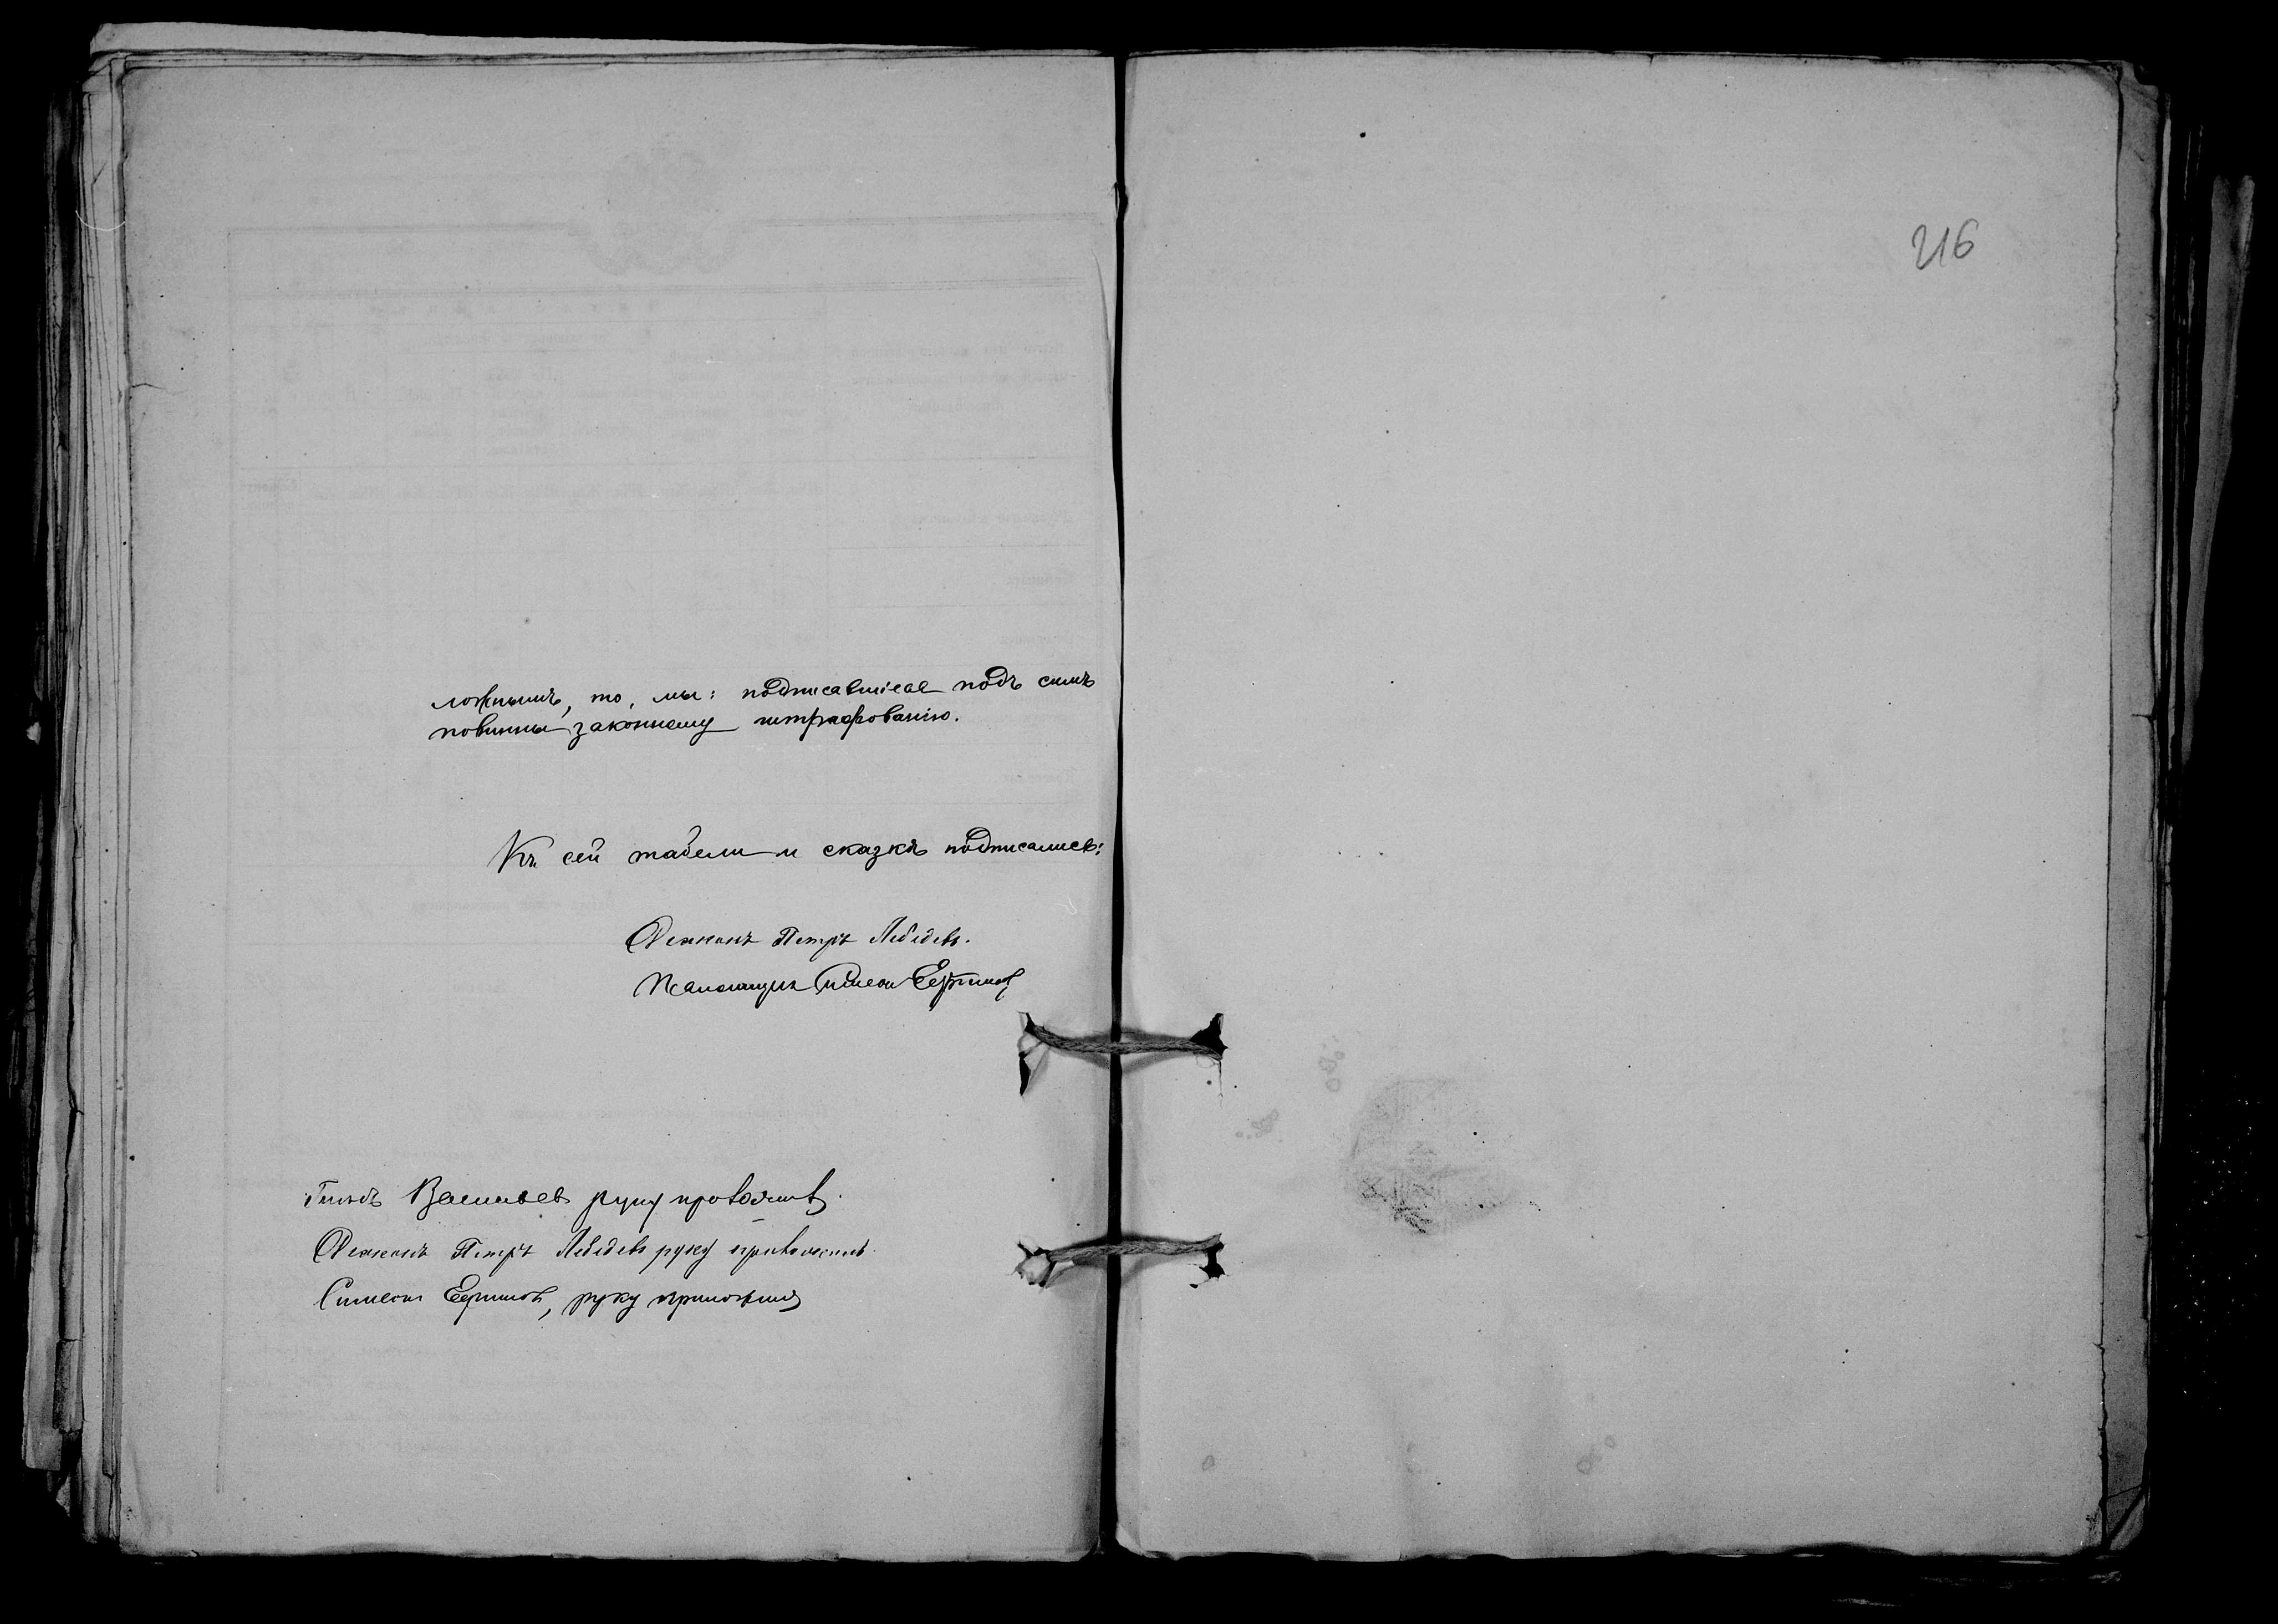 ложнымъ, то, мы: подписавшіеся подъ симъ
повинны законному штрафованію.
Къ сей табели и сказкѣ подписались:
Діаконъ Петръ Лебедевъ.
Псаломщикъ Симеонъ
Васильевъ руку приложилъ.
Діаконъ Петръ Лебедевъ руку приложилъ.
Симеонъ руку приложилъ
216